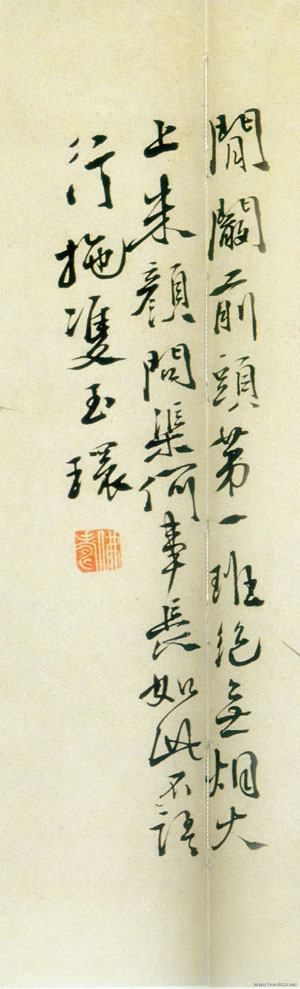 閶闔前頭第一班絕無烟火
上朱顔問渠何事長如此不語
行拖雙玉環